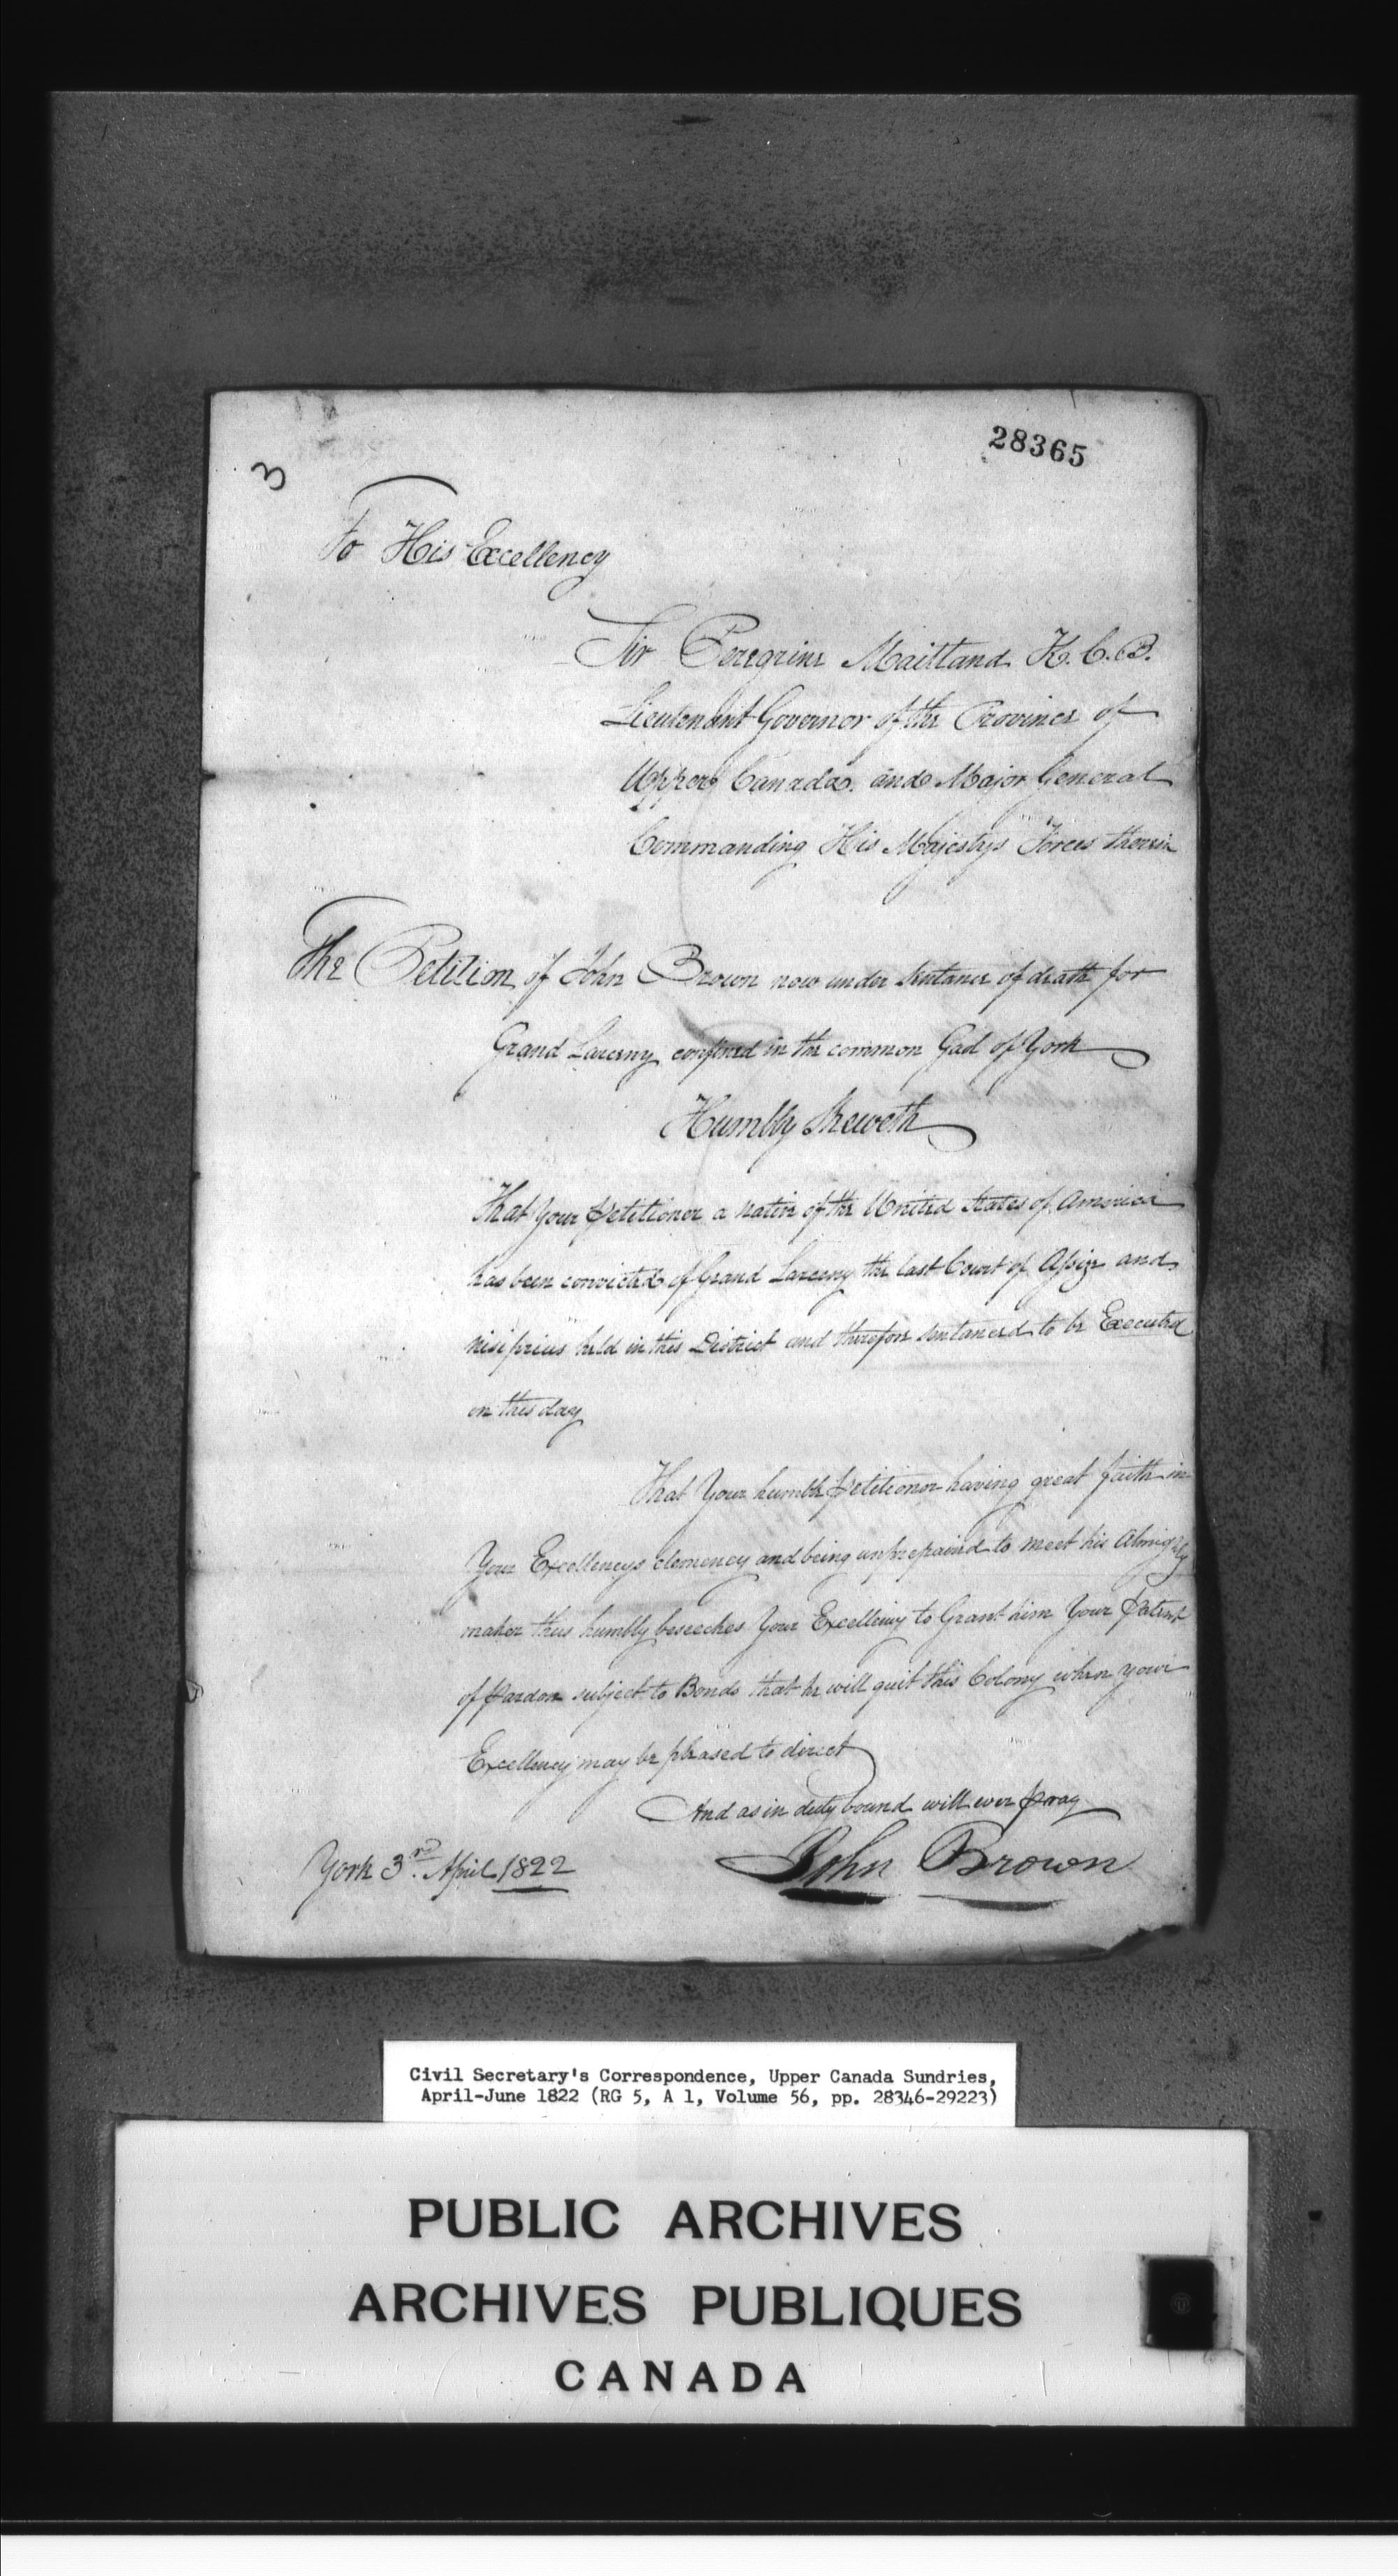 3
28365
To His Excellency
Sir Peregrine Maitland K.C.B.
Lieutenant Governor of the Province of
Upper Canada and Major General
Commanding His Majestys Forces therein
The Petition of John Brown now under sentance of death for
Grand Larceny confined in the common Gaol of York
Humbly Sheweth
That Your Petitioner a native of the United States of America
has been convicted of Grand Larceny the last Court of Assize and
nisi prius held in this District and therefore sentanced to be Executed
on this day
That Your humble Petitioner having great faith in
Your Excellencys clemency and being unprepaired to meet his Almighty
maker thus humbly beseeches Your Excellency to Grant him Your Patent
of Pardon subject to Bonds that he will quit this Colony when your
Excellency may be pleased to direct
And as in duty bound will ever Pray
York 3rd. April 1822
John Brown
Civil Secretary's Correspondence, Upper Canada Sundries,
April-June 1822 (RG 5, A 1, Volume 56, pp. 28346-29223)
PUBLIC ARCHIVES
ARCHIVES PUBLIQUES
CANADA